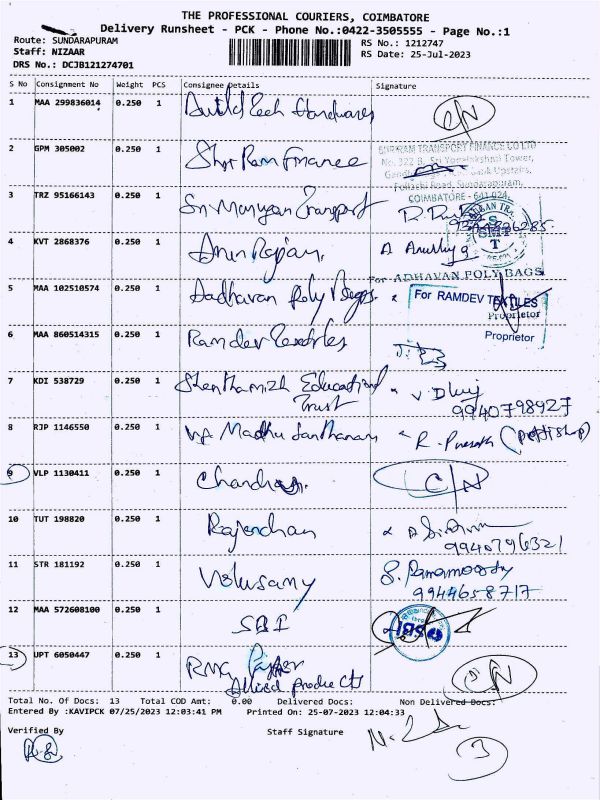 THE PROFESSIONAL COURIERS, COIMBATORE
Delivery Runsheet - PCK - Phone No.:0422-3505555 - Page No.:1
Route: SUNDARAPURAM
RS No.: 1212747
Staff: NIZAAR
RS Date: 25-Jul-2023
DRS No.: DCJB121274701
S No Consignment No Weight PCS Consignee Details Signature
1 MAA 299836014 0.250 1 Hardwares C/N
2 GPM 305002 0.250 1 Shri Ram Finance
SHRIRAM TRANSPORT FINANCE CO LTD
No. 322 B, Sri Tower,
Upstairs,
Pollachi Road, Sundarapuram,
COIMBATORE - 641 024.
3 TRZ 95166143 0.250 1 Sri Murugan Transport
SMT
4 KVT 2868376 0.250 1 Arun Rajan
For ADHAVAN POLY BAGS
5 MAA 102510574 0.250 1 Aadhavan Poly Bags
For RAMDEV TEXTILES
Proprietor
Proprietor
6 MAA 860514315 0.250 1 Ramdev Textiles
7 KDI 538729 0.250 1 Educational
Trust
9940798927
8 RJP 1146550 0.250 1 Madhu Santhanam R.
9 VLP 1130411 0.250 1 C/N
10 TUT 198820 0.250 1 Rajendhan
9940796321
11 STR 181192 0.250 1 Velusamy S. Ramamoorthy
9944658717
12 MAA 572608100 0.250 1 SBI
SBI
13 UPT 6050447 0.250 1 RMG Paper
Allied products
Total No. Of Docs: 13 Total COD Amt: 0.00 Delivered Docs: Non Delivered Docs:
Entered By :KAVIPCK 07/25/2023 12:03:41 PM Printed On: 25-07-2023 12:04:33
Verified By
Staff Signature
3